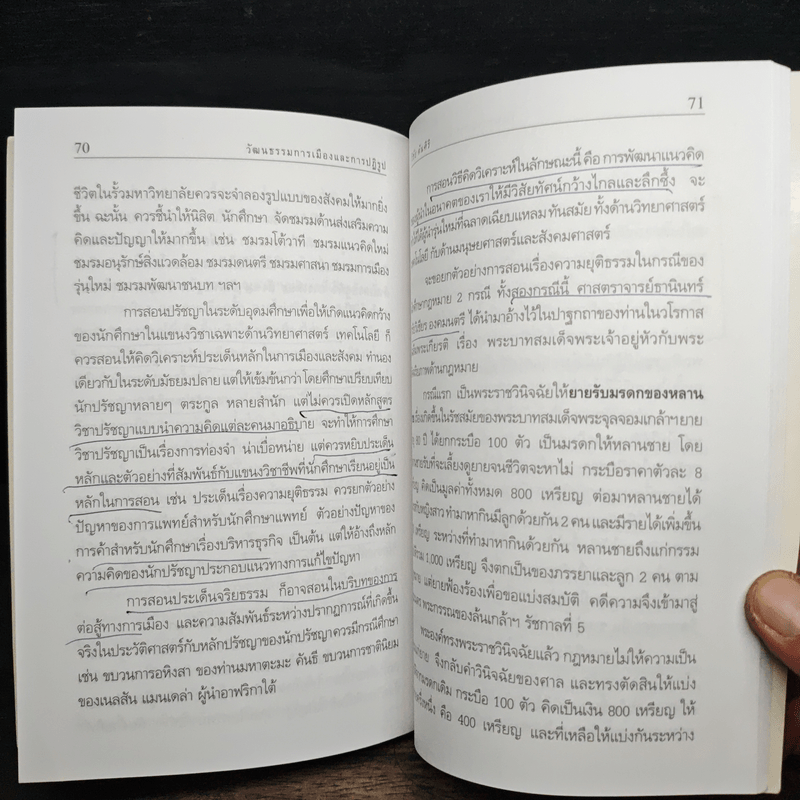 70
วัฒนธรรมการเมืองและการปฏิรูป
ชีวิตในรั้วมหาวิทยาลัยควรจะจำลองรูปแบบของสังคมให้มากยิ่ง
ขึ้น ฉะนั้น ควรชี้นำให้นิสิต นักศึกษา จัดชมรมด้านส่งเสริมความ
คิดและปัญญาให้มากขึ้น เช่น ชมรมโต้วาที ชมรมแนวคิดใหม่
ชมรมอนุรักษ์สิ่งแวดล้อม ชมรมดนตรี ชมรมศาสนา ชมรมการเมือง
รุ่นใหม่ ชมรมพัฒนาชนบท ฯลฯ
การสอนปรัชญาในระดับอุดมศึกษาเพื่อให้เกิดแนวคิดกว้าง
ของนักศึกษาในแขนงวิชาเฉพาะด้านวิทยาศาสตร์ เทคโนโลยี ก็
ควรสอนให้คิดวิเคราะห์ประเด็นหลักในการเมืองและสังคม ทำนอง
เดียวกับในระดับมัธยมปลาย แต่ให้เข้มข้นกว่า โดยศึกษาเปรียบเทียบ
นักปรัชญาหลายๆ ตระกูล หลายสำนัก แต่ไม่ควรเปิดหลักสูตร
วิชาปรัชญาแบบนำความคิดแต่ละคนมาอธิบาย จะทำให้การศึกษา
วิชาปรัชญาเป็นเรื่องการท่องจำ น่าเบื่อหน่าย แต่ควรหยิบประเด็น
หลักและตัวอย่างที่สัมพันธ์กับแขนงวิชาชีพที่นักศึกษาเรียนอยู่เป็น
หลักในการสอน เช่น ประเด็นเรื่องความยุติธรรม ควรยกตัวอย่าง
ปัญหาของการแพทย์สำหรับนักศึกษาแพทย์ ตัวอย่างปัญหาของ
การค้าสำหรับนักศึกษาเรื่องบริหารธุรกิจ เป็นต้น แต่ให้อ้างถึงหลัก
ความคิดของนักปรัชญาประกอบแนวทางการแก้ไขปัญหา
การสอนประเด็นจริยธรรม ก็อาจสอนในบริบทของการ
ต่อสู้ทางการเมือง และความสัมพันธ์ระหว่างปรากฏการณ์ที่เกิดขึ้น
จริงในประวัติศาสตร์กับหลักปรัชญาของนักปรัชญาควรมีกรณีศึกษา
เช่น ขบวนการอหิงสา ของท่านมหาตะมะ คันธี ขบวนการชาตินิยม
ของเนลสัน แมนเดล่า ผู้นำอาฟริกาใต้
71
การสอนวิธีคิดวิเคราะห์ในลักษณะนี้ คือ การพัฒนาแนวคิด
ผู้นำในอนาคตของเราให้มีวิสัยทัศน์กว้างไกลและลึกซึ้ง จะ
ได้ผู้นำรุ่นใหม่ที่ฉลาดเฉียบแหลม ทันสมัย ทั้งด้านวิทยาศาสตร์
กับด้านมนุษยศาสตร์และสังคมศาสตร์
จะขอยกตัวอย่างการสอนเรื่องความยุติธรรมในกรณีของ
กฎหมาย 2 กรณี ทั้งสองกรณีนี้ ศาสตราจารย์ธานินทร์
องคมนตรี ได้นำมาอ้างไว้ในปาฐกถาของท่านในวโรกาส
พระเกียรติ เรื่อง พระบาทสมเด็จพระเจ้าอยู่หัวกับพระ
ด้านกฎหมาย
กรณีแรก เป็นพระราชวินิจฉัยให้ยายรับมรดกของหลาน
เกิดขึ้นในรัชสมัยของพระบาทสมเด็จพระจุลจอมเกล้าฯ ยาย
ปี ได้ยกกระบือ 100 ตัว เป็นมรดกให้หลานชาย โดย
รับที่จะเลี้ยงดูยายจนชีวิตจะหาไม่ กระบือราคาตัวละ 8
คิดเป็นมูลค่าทั้งหมด 800 เหรียญ ต่อมาหลานชายได้
หญิงสาว ทำมาหากินมีลูกด้วยกัน 2 คน และมีรายได้เพิ่มขึ้น
เหรียญ ระหว่างที่ทำมาหากินด้วยกัน หลานชายถึงแก่กรรม
1,000 เหรียญ จึงตกเป็นของภรรยาและลูก 2 คน ตาม
แต่ยายฟ้องร้องเพื่อขอแบ่งสมบัติ คดีความจึงเข้ามาสู่
พระกรรณของล้นเกล้าฯ รัชกาลที่ 5
พระองค์ทรงพระราชวินิจฉัยแล้ว กฎหมายไม่ให้ความเป็น
จึงกลับคำวินิจฉัยของศาล และทรงตัดสินให้แบ่ง
มรดกเดิม กระบือ 100 ตัว คิดเป็นเงิน 800 เหรียญ ให้
ครึ่งหนึ่ง คือ 400 เหรียญ และที่เหลือให้แบ่งกันระหว่าง